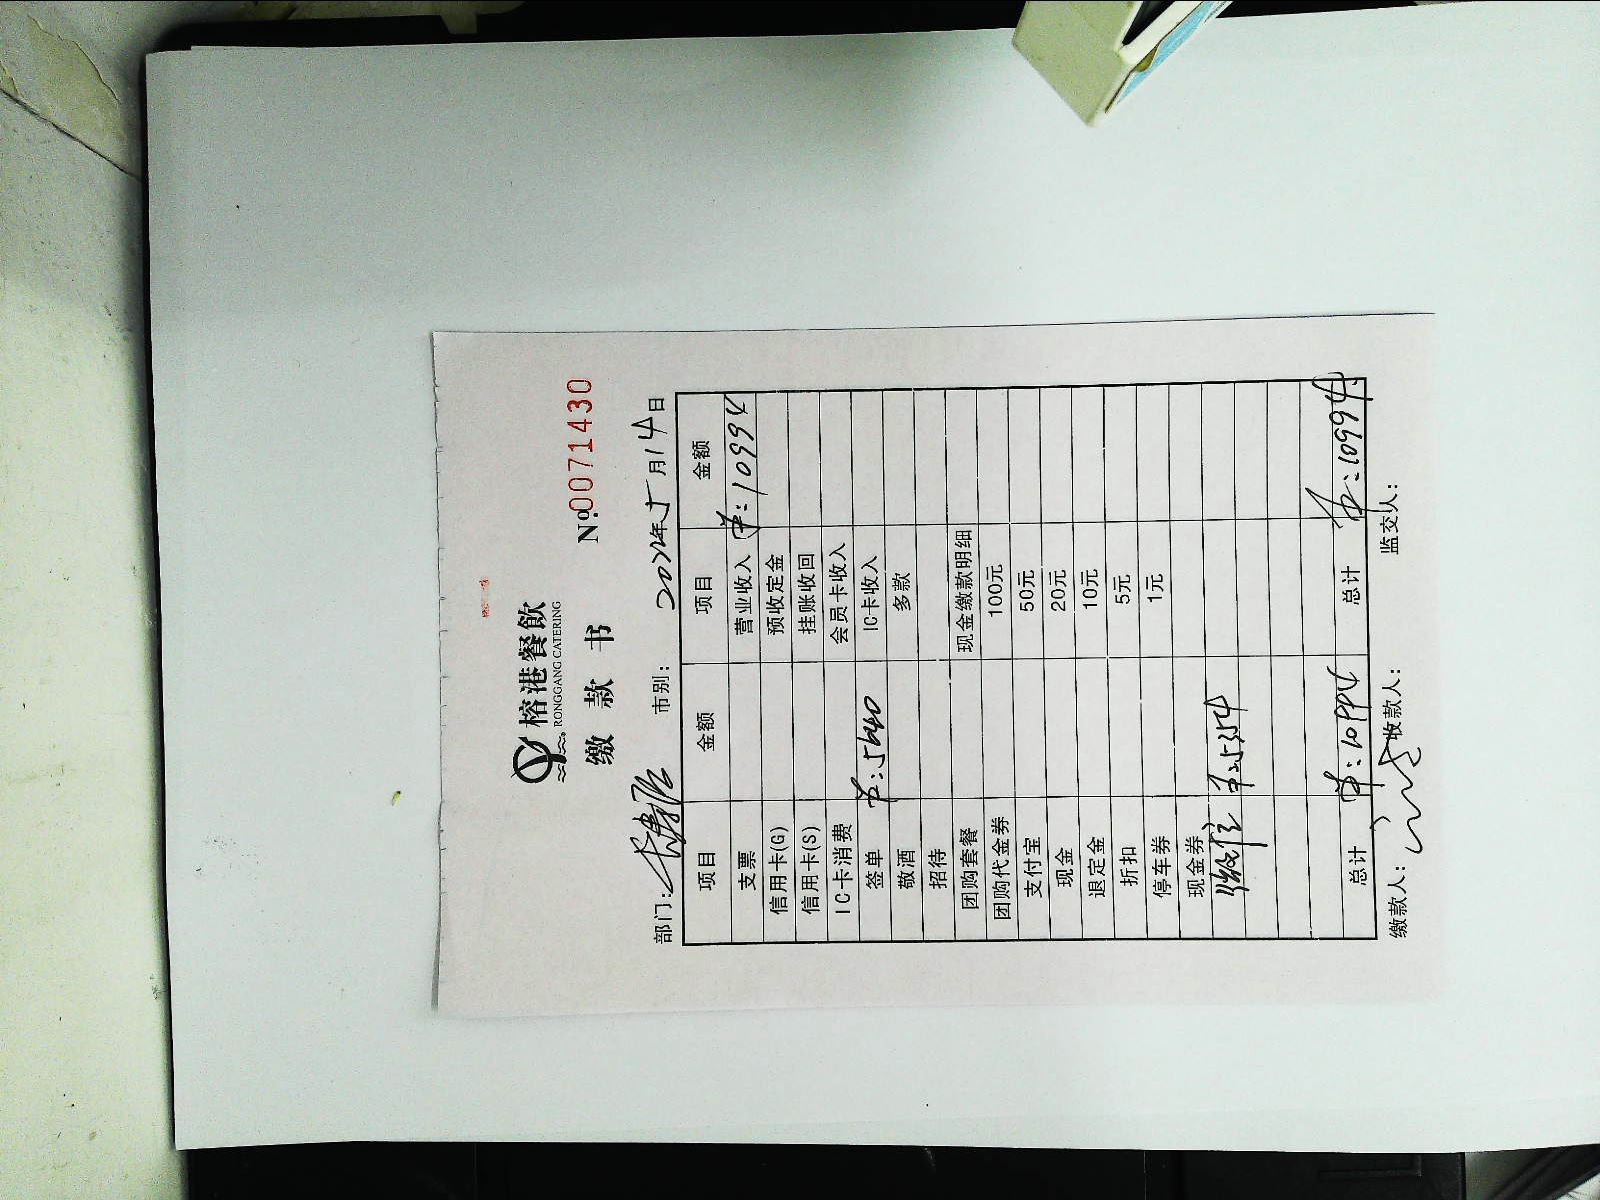 榕港餐飲
RONGGANG CATERING
缴 款 书
№0071430
部门: 市别: 2022年5月14日
项目 金额 项目 金额
支票 营业收入 ¥:10994
信用卡(G) 预收定金
信用卡(S) 挂账收回
IC卡消费 会员卡收入
签单 ¥:5640 IC卡收入
敬酒 多款
招待
团购套餐 现金缴款明细
团购代金券 100元
支付宝 50元
现金 20元
退定金 10元
折扣 5元
停车券 1元
现金券
微信 ¥:5354
总计 ¥:10994 总计 ¥:10994
缴款人: 收款人: 监交人: